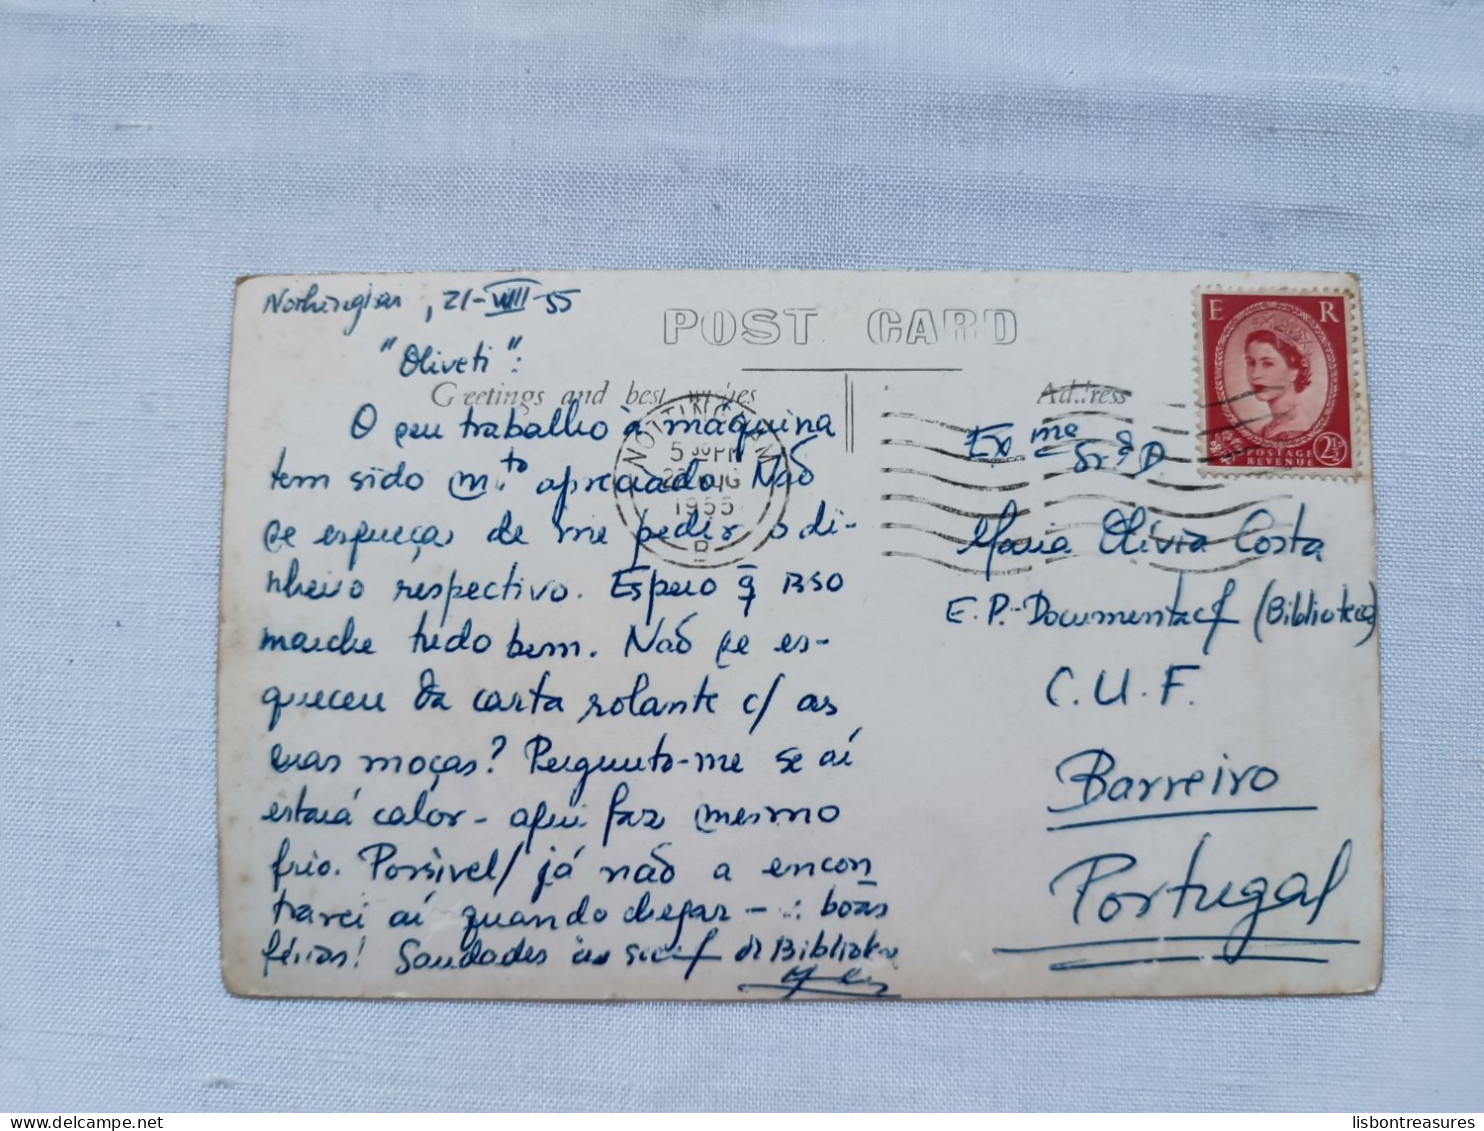 Nottingham, 21-VIII-55
POST CARD
"Oliveti":
Greetings and best wishes
Address
O seu trabalho à máquina
tem sido m.to apreciado. Não
se esqueças de me pedir o di-
nheiro respectivo. Espero q̄ isso
marche tudo bem. Não se es-
queceu da carta rolante c/ as
suas moças? Pergunto-me se aí
estará calor - aqui faz mesmo
frio. Possivel/ já não a encon
trarei aí quando chegar - boas
férias! Saudades da Bibliote
NOTTINGHAM
5 30 PM
AUG
1955
B
E R
POSTAGE
REVENUE
2½
Exme Srª D.
Maria Olívia Costa
E.P.-Documentaç (Biblioteca)
C.U.F.
Barreiro
Portugal
lisbontreasures.com